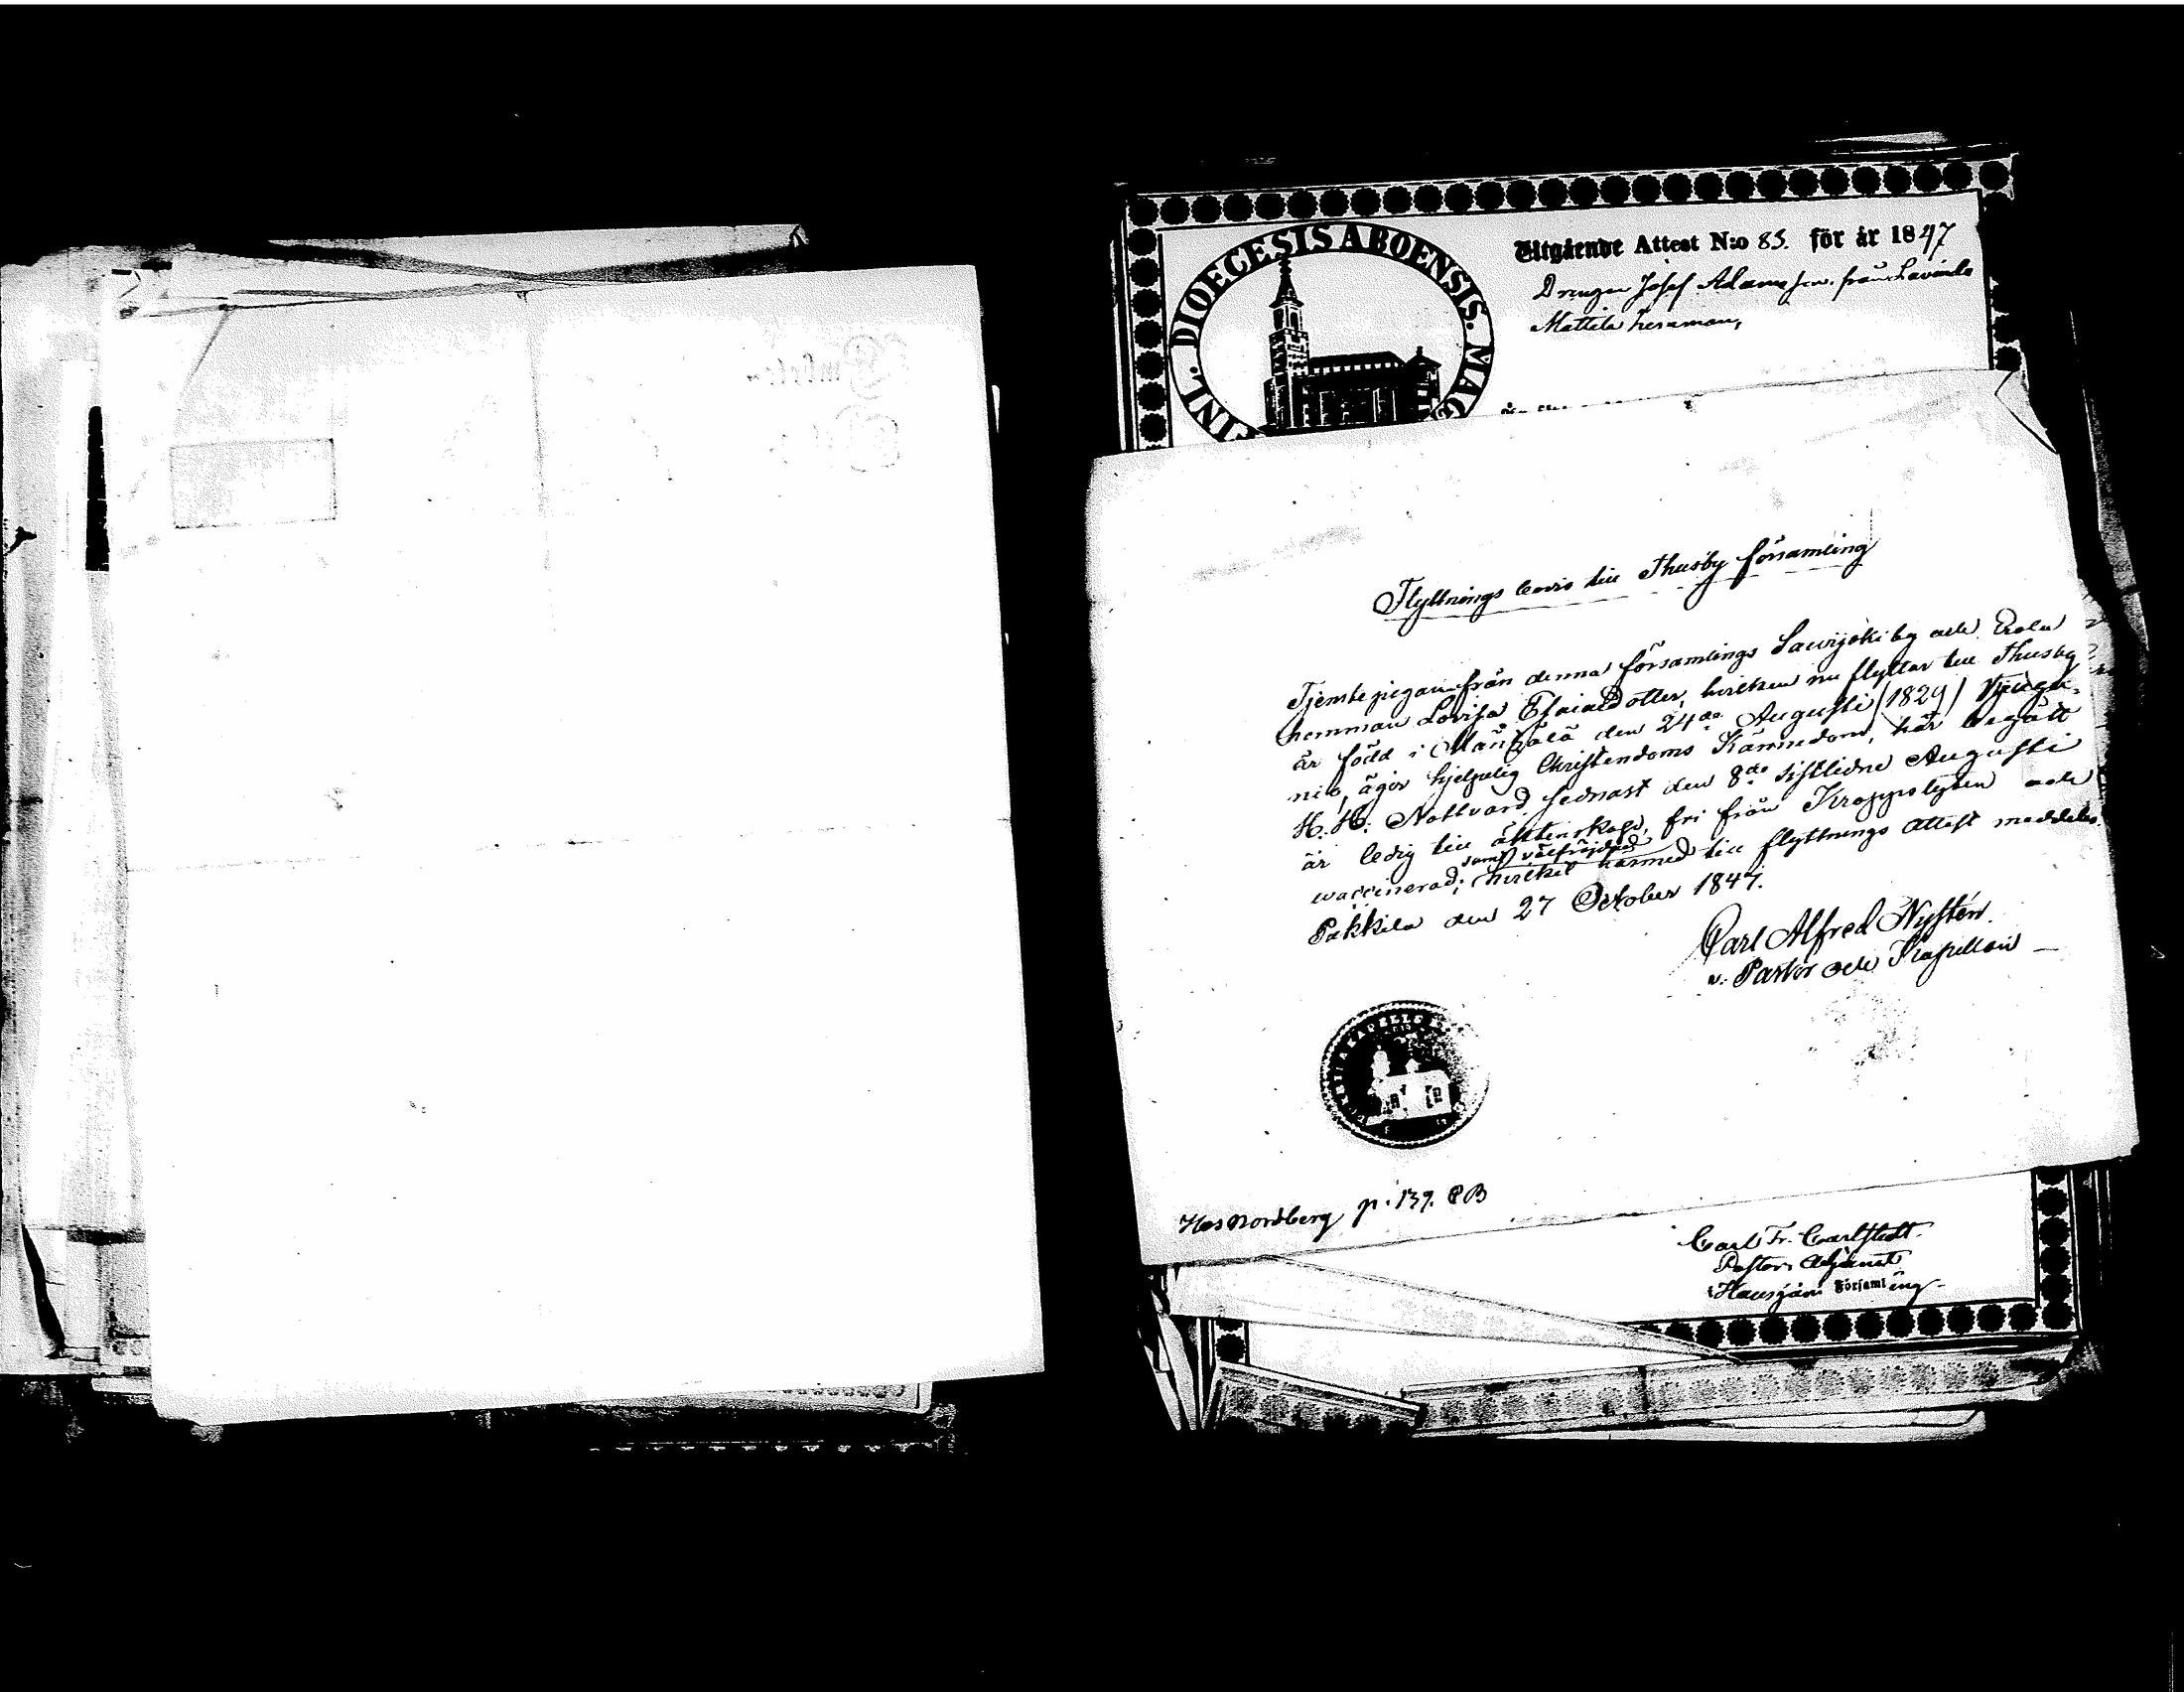 DIOECESIS ABOENSIS. MAG
FINL.
Utgående Attest N:o 85. för år 1847
Drengen Josef Adamsson från
Mattila hemman,
Flyttnings bevis till Thusby församling
Tjenstepigan från denna församlings Sawijoki by och Erola
hemman Lovisa Esaiædotter, hvilken nu flyttar till Thusby
är född i Mäntzälä den 24de Augusti (1829) tjugu-
nio, äger hjelpelig Christendoms Kännedom, har begått
H. H. Nattvard sednast den 8de sistlidne Augusti
är ledig till äktenskap, fri från Kroppslyten och
samt välfräjdad
waccinerad; hvilket härmed till flyttnings attest meddelas.
Pukkila den 27 October 1847.
Carl Alfred Nysten.
v. Pastor och Kapellan
Hos Nordberg p. 139. CB
Carl Fr. Carlstedt.
Pastors Adjunct
Hausjärvi Församling